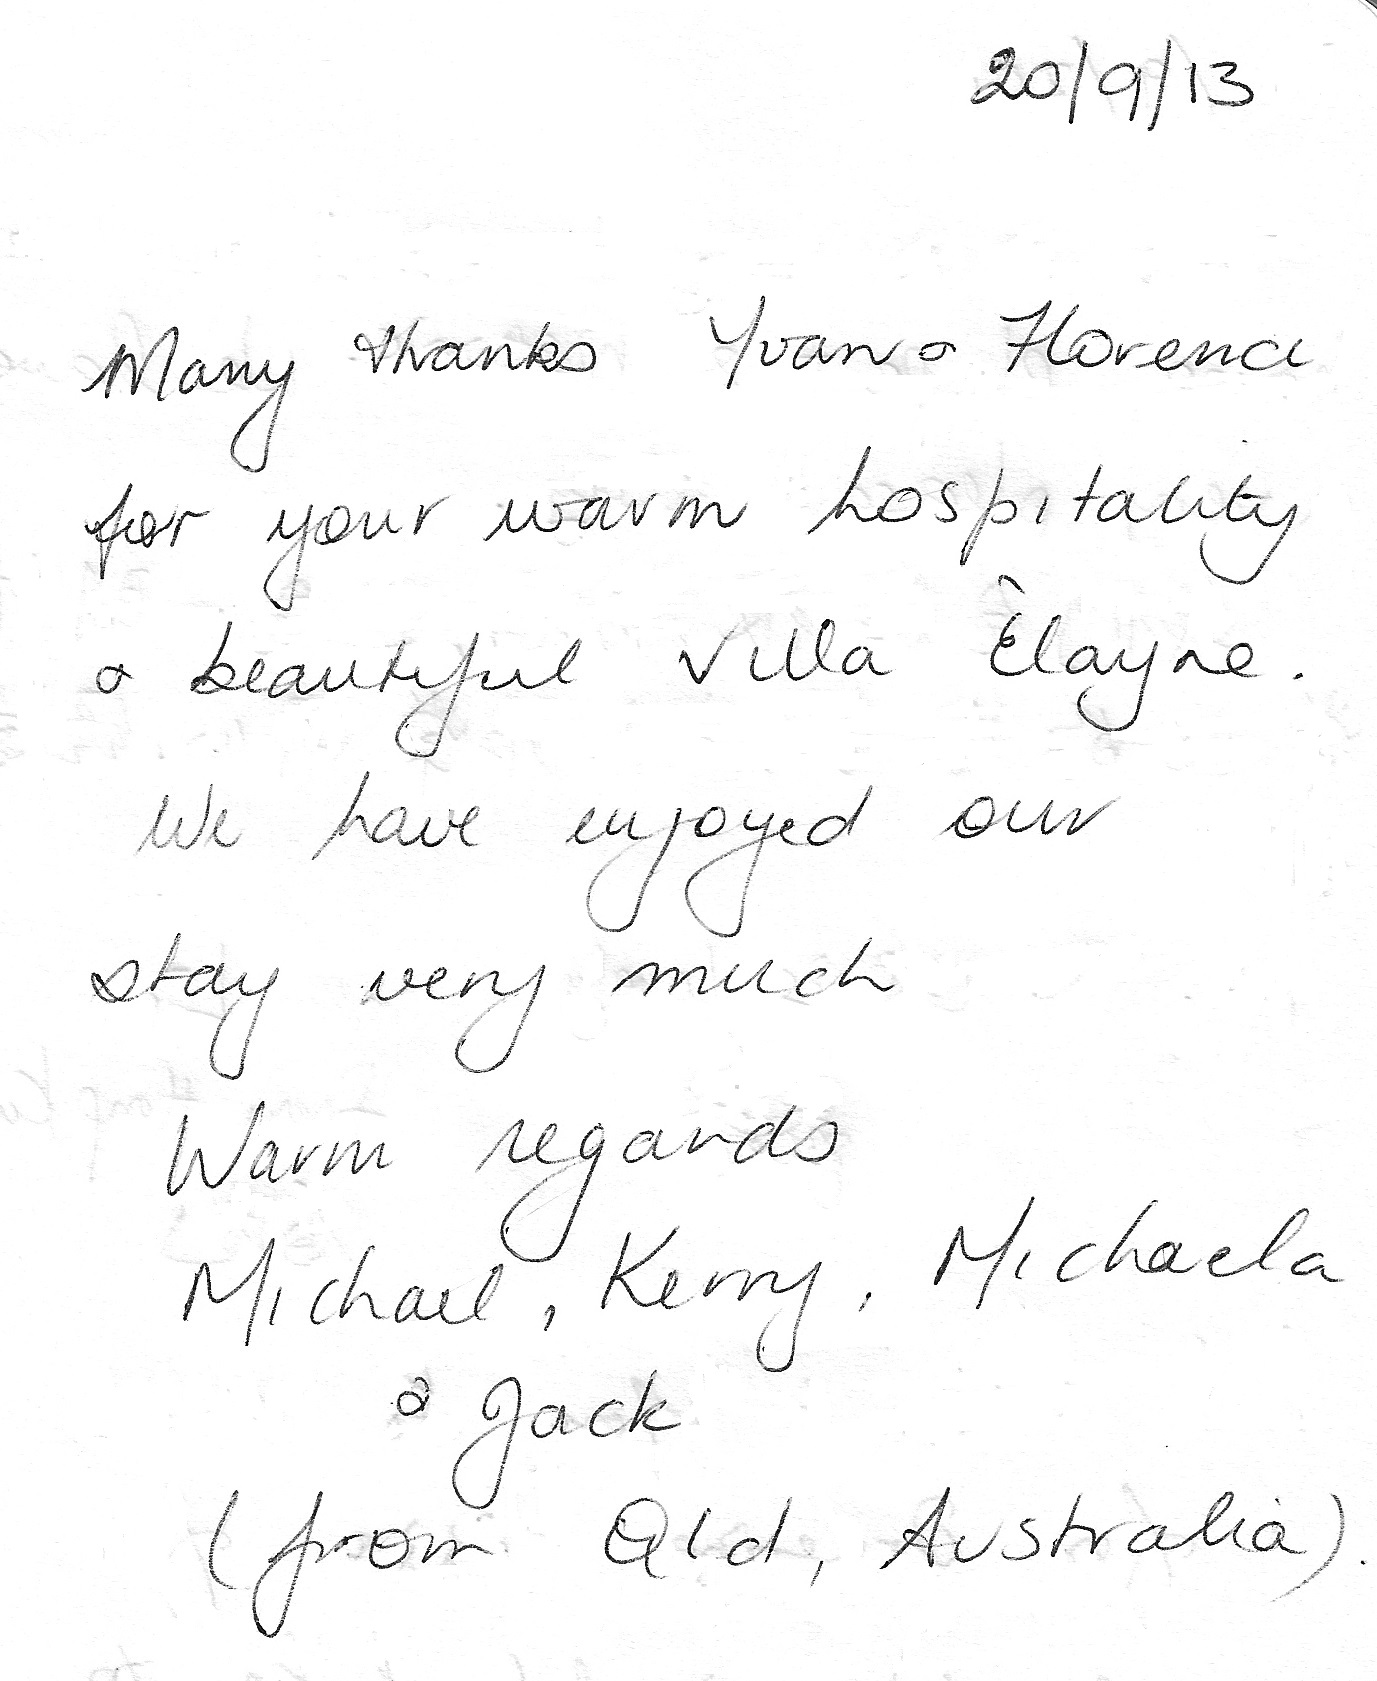 20/9/13
Many thanks Yvan & Florence
for your warm hospitality
& beautiful Villa Èlayne.
We have enjoyed our
stay very much
Warm regards
Michael, Kerry, Michaela
& Jack
(from Qld, Australia).